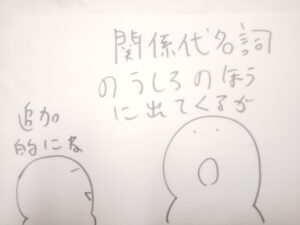 関係代名詞
のうしろのほう
に出てくるが
追加
的にな